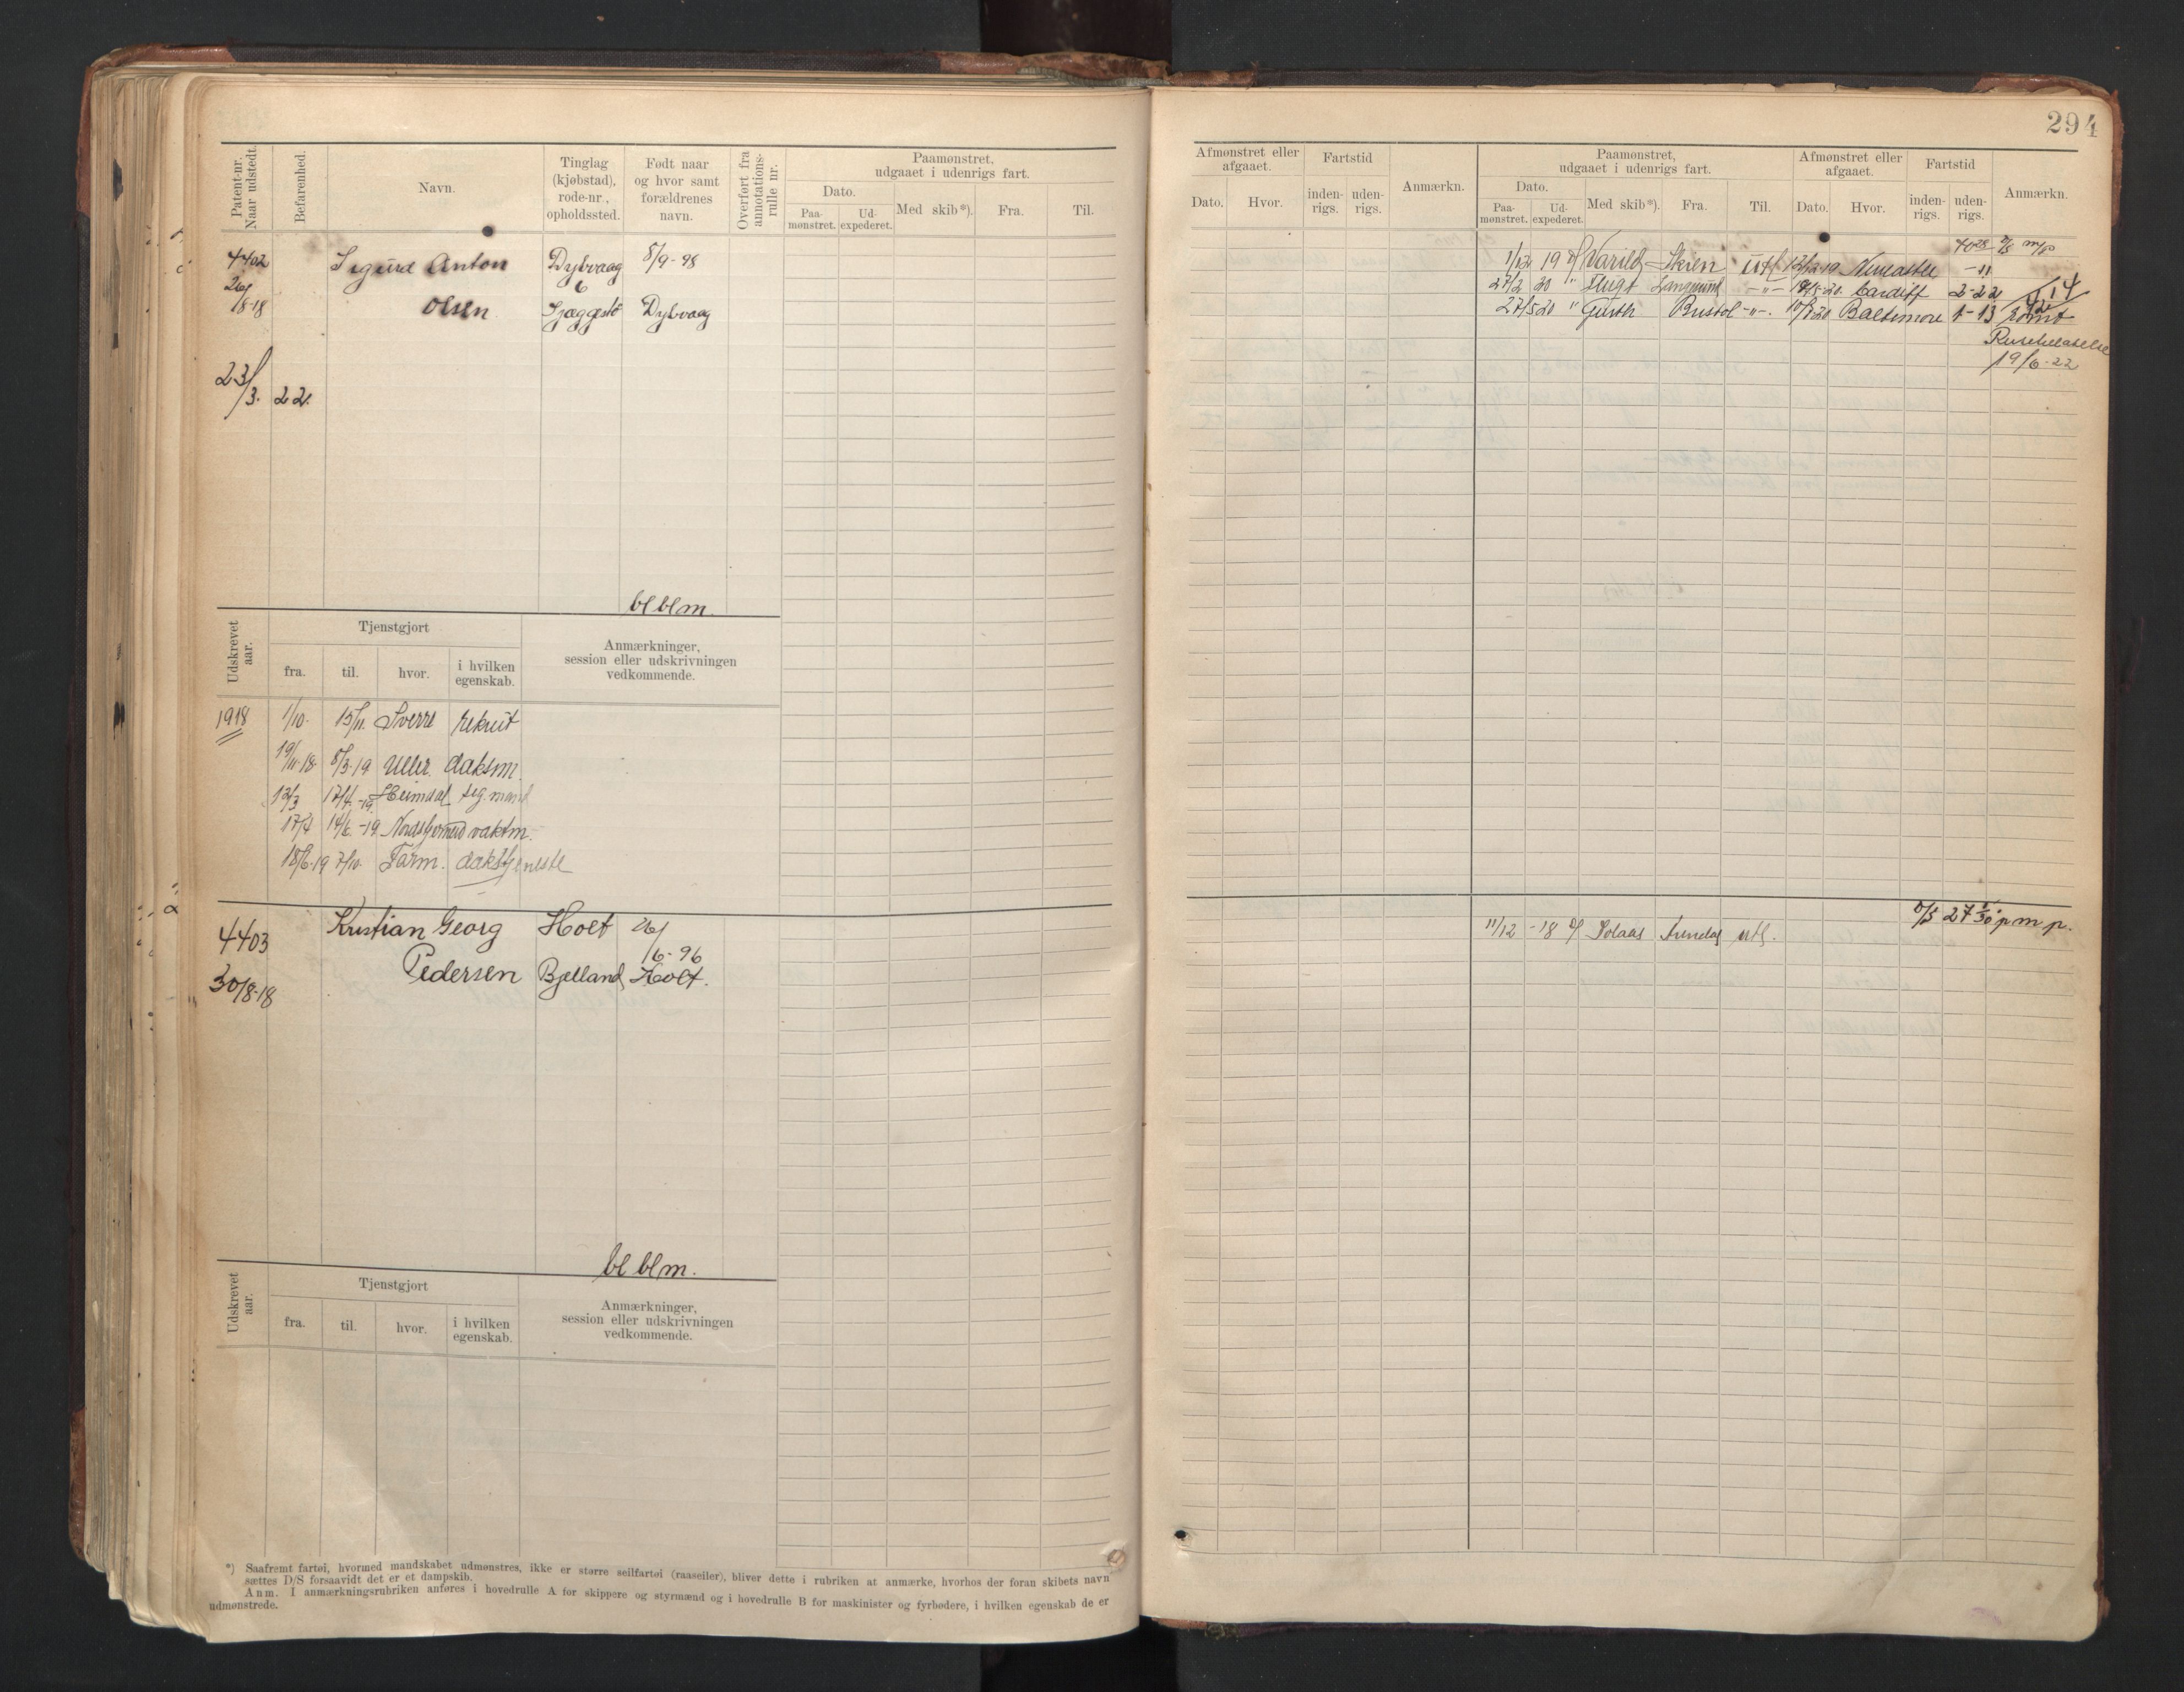 294
Patent-nr. Naar udstedt.
Befarenhed.
Navn.
Tinglag (kjøbstad), rode-nr., opholdssted.
Født naar og hvor samt forældrenes navn.
Overført fra annotations-rulle nr.
Paamønstret, udgaaet i udenrigs fart.
Dato.
Paa-mønstret.
Ud-expederet.
Med skib*).
Fra.
Til.
Afmønstret eller afgaaet.
Dato.
Hvor.
Fartstid
inden-rigs.
uden-rigs.
Anmærkn.
Paamønstret, udgaaet i udenrigs fart.
Dato.
Paa-mønstret.
Ud-expederet.
Med skib*).
Fra.
Til.
Afmønstret eller afgaaet.
Dato.
Hvor.
Fartstid
inden-rigs.
uden-rigs.
Anmærkn.
4402 Sigurd Anton Dybvaag 8/9-98
26/8-18 Olsen 6 Dybvaag
23/3. 22.
bl blm.
1/12 19 Varild Skien utl 12/12 19
27/2 20 " Langesund -"- Cardiff 2-22
27/5 20 " Gurth Bristol -"-. 20 Baltimore 1-13
19/6-22
Udskrevet aar.
Tjenstgjort
fra.
til.
hvor.
i hvilken egenskab.
Anmærkninger, session eller udskrivningen vedkommende.
1918 1/10. 15/11. Sverre rekrut
19/11-18. 8/3-19 Uller. daksm.
12/3 17/4.-19. Heimdal
17/4 14/6.-19. vaktm.
18/6-19 7/10. Farm. dakstjeneste
4403 Kristian Georg Holt 26/6-96
30/8-18 Pedersen Bjelland Holt.
bl blm.
11/12 -18 utl.
p.m.p.
Udskrevet aar.
Tjenstgjort
fra.
til.
hvor.
i hvilken egenskab.
Anmærkninger, session eller udskrivningen vedkommende.
*) Saafremt fartøi, hvormed mandskabet udmønstres, ikke er større seilfartøi (raaseiler), bliver dette i rubriken at anmærke, hvorhos der foran skibets navn
sættes D/S forsaavidt det er et dampskib.
Anm. I anmærkningsrubriken anføres i hovedrulle A for skippere og styrmænd og i hovedrulle B for maskinister og fyrbødere, i hvilken egenskab de er
udmønstrede.